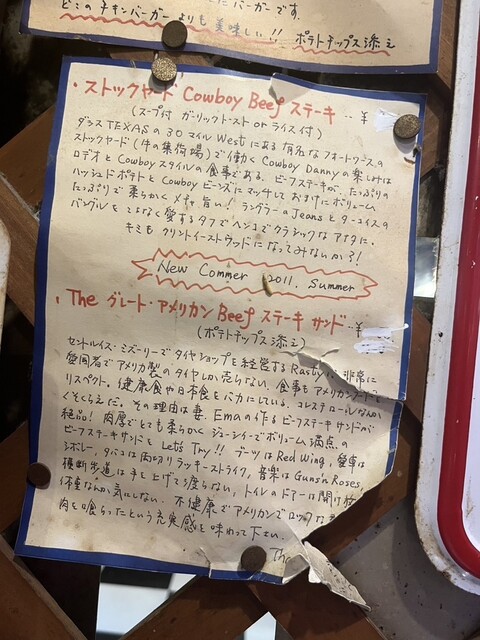 こだバーガーです。
どこのチキンバーガーよりも美味しい!! ポテトチップス添え
・ストックヤード Cowboy Beef ステーキ…¥
(スープ付 ガーリックトースト or ライス付)
ダラスTEXASの30マイルWestにある有名なフォートワースの
ストックヤード(牛の集荷場)で働くCowboy Dannyの楽しみは
ロデオとCowboyスタイルの食事である。ビーフステーキが、たっぷりの
ハッシュドポテトとCowboyビーンズにマッチしておまけにボリューム
たっぷりで柔らかくメチャ旨い! ラングラーのJeansとターコイスの
バングルをこよなく愛するタフでヘンコでクラシックなアナタに。
キミもクリントイーストウッドになってみないか?!
New Commer 2011. Summer
・The グレート・アメリカン Beef ステーキ サンド…¥
(ポテトチップス添え)
セントルイス・ミズーリーでタイヤショップを経営するRastyは非常に
愛国者でアメリカ製のタイヤしか売らない。食事もアメリカンフードを
リスペクト。健康食や日本食をバカにしている。コレステロールなんか
くそくらえだ。その理由は妻Emaの作るビーフステーキサンドが
絶品! 肉厚でとても柔らかくジューシィーでボリュームは満点の
ビーフステーキサンドを Let's Try!! ブーツはRed Wing, 愛車は
シボレー, タバコは両切りラッキーストライク, 音楽はGuns'n Roses,
横断歩道は手を上げて渡らない, トイレのドアーは開け放
体重なんか気にしない。不健康でアメリカンでロックな
肉を喰らったという充実感を味わって下さい。
Th